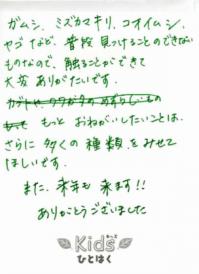 ガムシ、ミズカマキリ、コオイムシ、
ヤゴなど、普段見つけることのできない
ものなので、触ることができて
大変ありがたいです。
もっとおねがいしたいことは、
さらに多くの種類をみせて
ほしいです。
また、来年も来ます!!
ありがとうございました
Kids
ひとはく